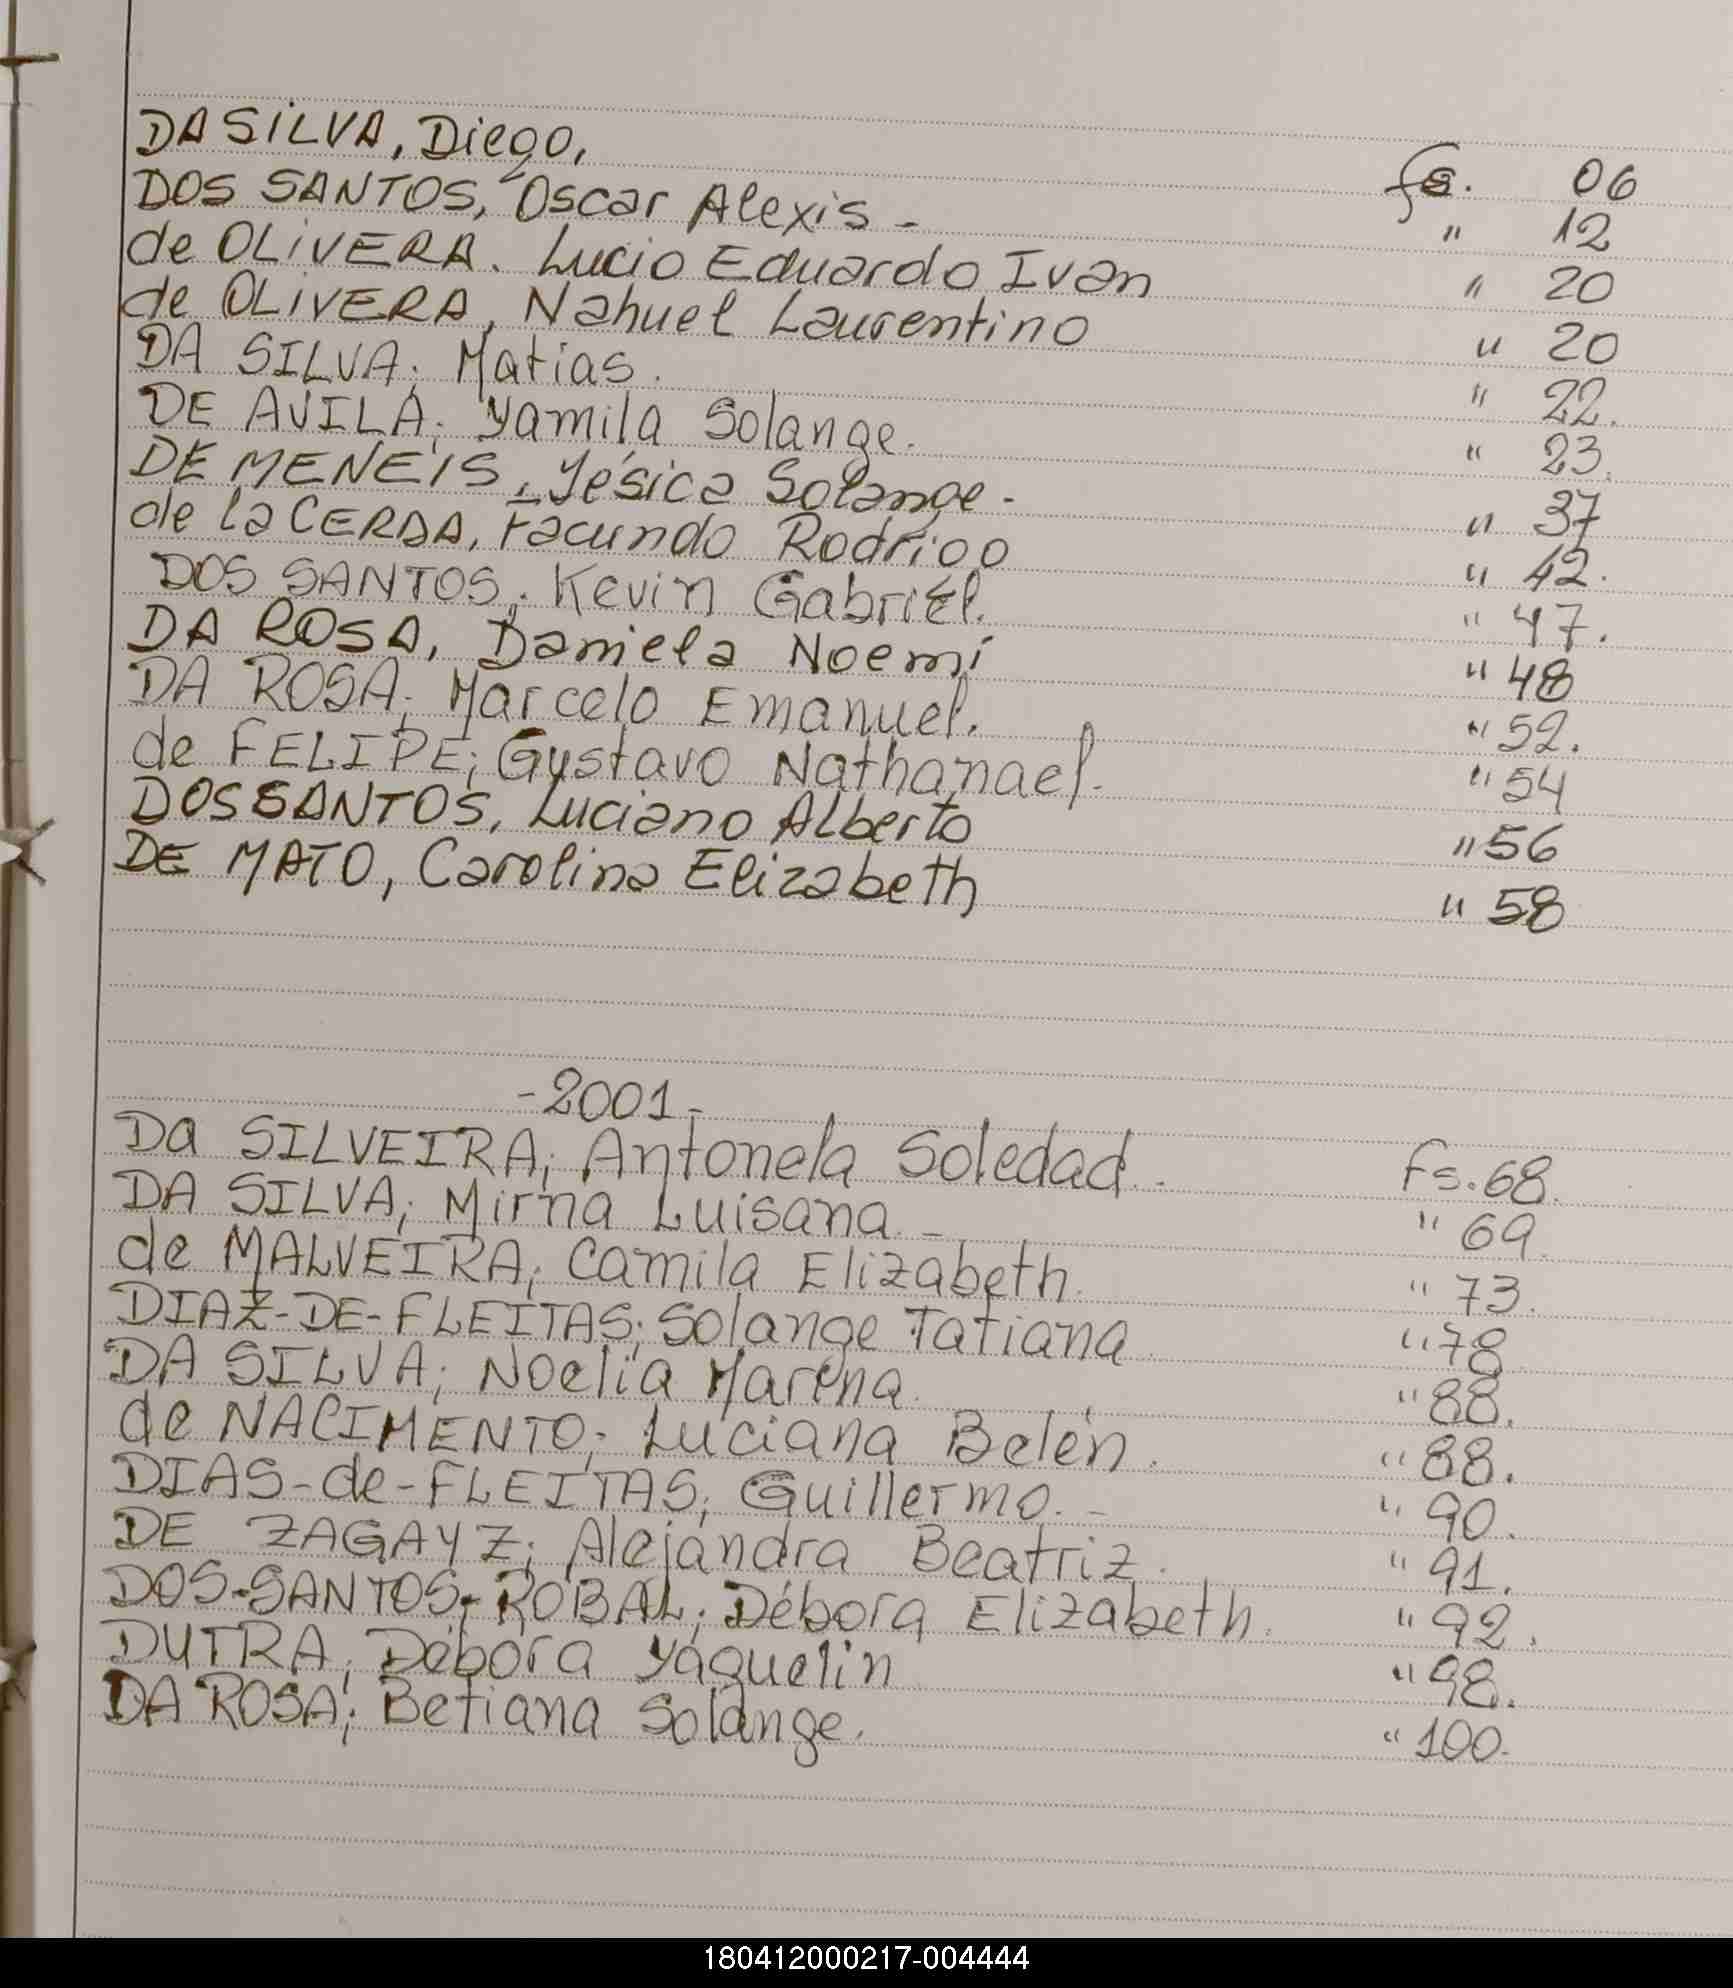 DA SILVA, Diego, fs. 06
DOS SANTOS, Oscar Alexis - " 12
de OLIVERA. Lucio Eduardo Ivan " 20
de OLIVERA, Nahuel Laurentino " 20
DA SILVA; Matias. " 22.
DE AVILA; Yamila Solange. " 23.
DE MENEIS, Yésica Solange - " 37
de la CERDA, Facundo Rodrigo " 42.
DOS SANTOS; Kevin Gabriel. " 47.
DA ROSA, Daniela Noemí " 48
DA ROSA; Marcelo Emanuel. " 52.
de FELIPE; Gustavo Nathanael. " 54
DOS SANTOS, Luciano Alberto " 56
DE MATO, Carolina Elizabeth " 58
-2001-
Da SILVEIRA; Antonela Soledad. Fs. 68.
DA SILVA; Mirna Luisana. - " 69.
de MALVEIRA; Camila Elizabeth. " 73.
DIAZ-DE-FLEITAS; Solange Tatiana. " 78
DA SILVA; Noelia Marena. " 88.
de NACIMENTO; Luciana Belén. " 88.
DIAS-de-FLEITAS; Guillermo. - " 90.
DE ZAGAYZ; Alejandra Beatriz. " 91.
DOS-SANTOS-ROBAL; Débora Elizabeth. " 92.
DUTRA; Débora Yaquelin " 98.
DA ROSA; Betiana Solange. " 100.
180412000217-004444